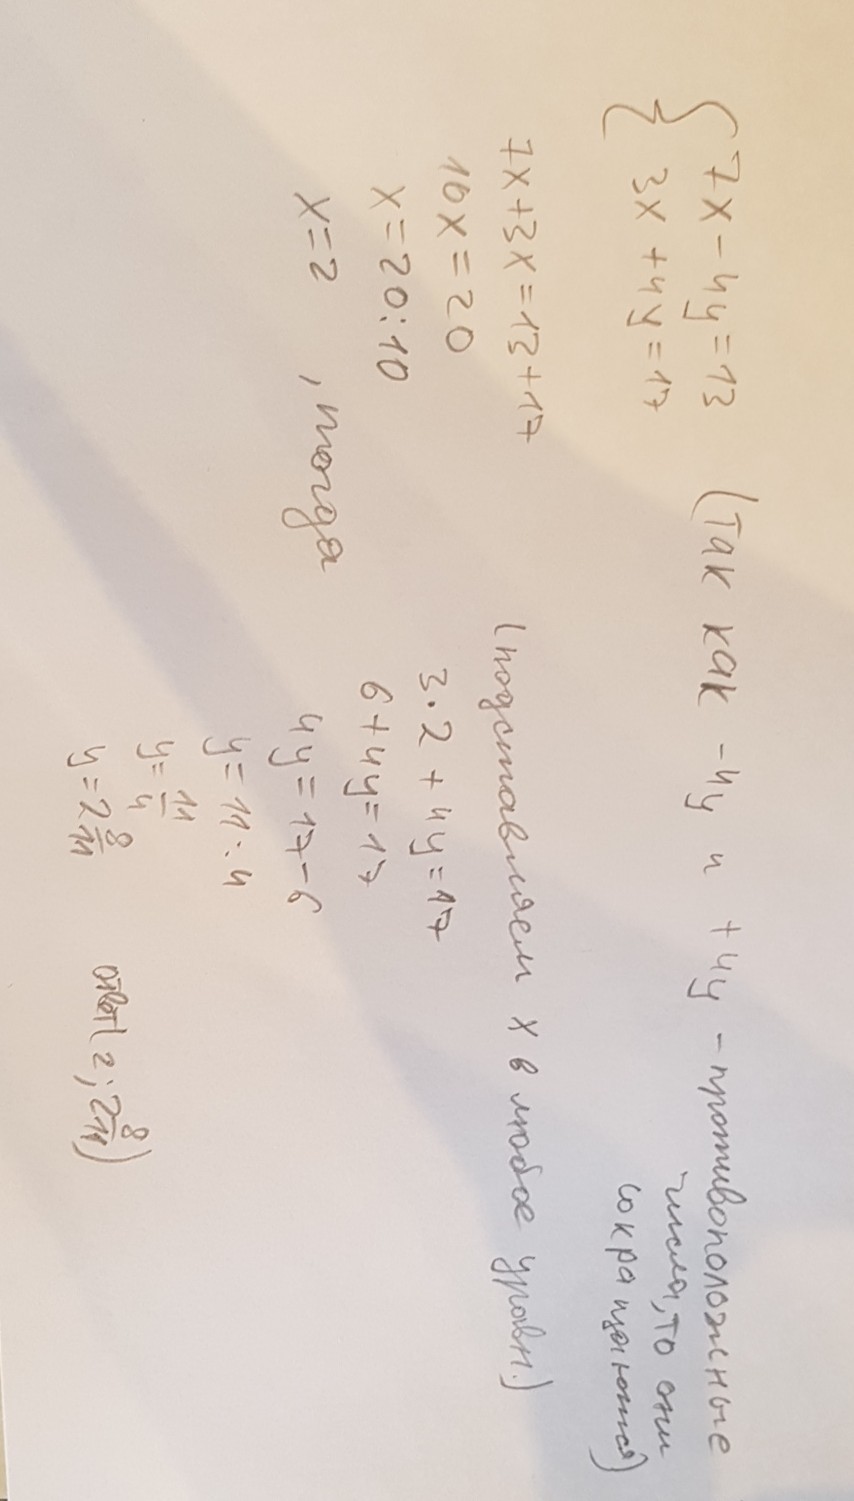 7x - 4y = 13 (так как -4y и +4y - противоположные
3x + 4y = 17
числа, то они
сокращаются)
7x+3x=13+17
10x = 20
x = 20:10
x = 2 , тогда
(подставляем x в любое уравн.)
3·2 + 4y = 17
6 + 4y = 17
4y = 17-6
y = 11:4
y = 11/4
y = 2 8/11
ответ(2; 2 8/11)